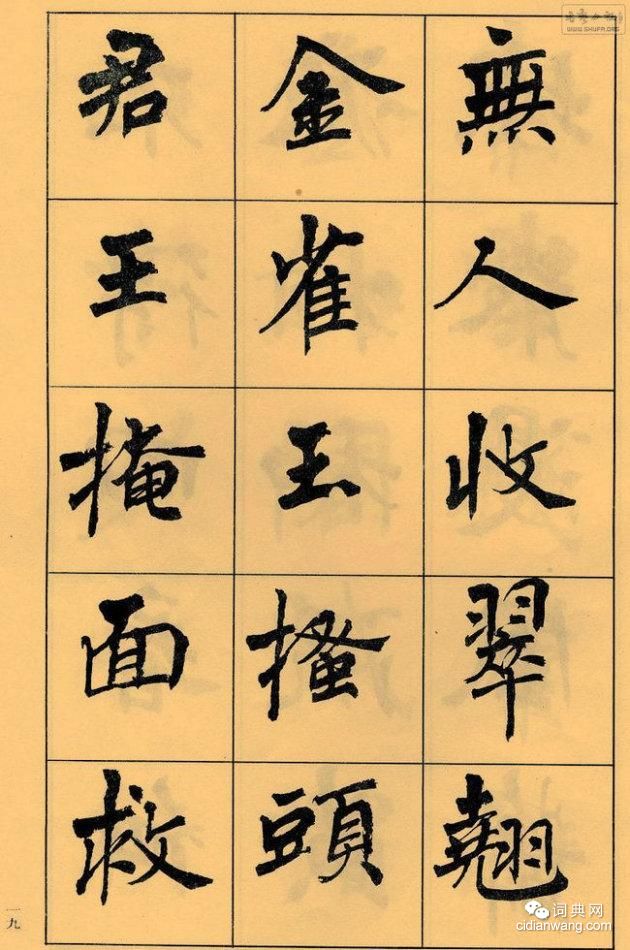 無人收翠翹
金雀玉搔頭
君王掩面救
一九
WWW.SHUFA.ORG
词典网
cidianwang.com